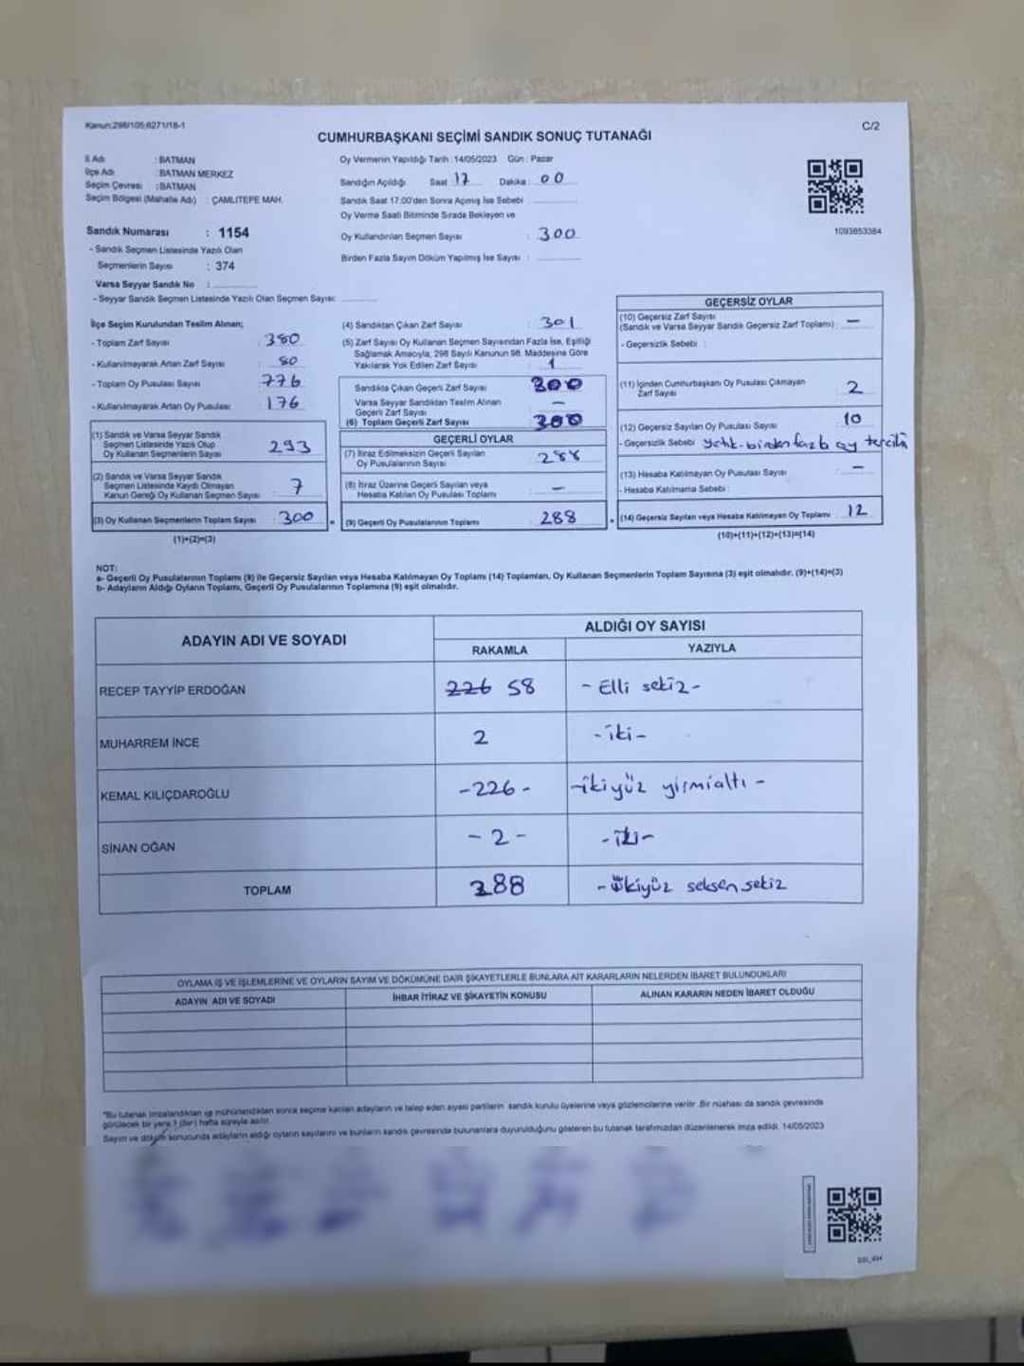 Kanun:298/105;6271/18-1
C/2
CUMHURBAŞKANI SEÇİMİ SANDIK SONUÇ TUTANAĞI
İl Adı : BATMAN
İlçe Adı : BATMAN MERKEZ
Seçim Çevresi : BATMAN
Seçim Bölgesi (Mahalle Adı) : ÇAMLITEPE MAH.
Oy Vermenin Yapıldığı Tarih : 14/05/2023 Gün : Pazar
Sandığın Açıldığı Saat 17 Dakika : 00
Sandık Saat 17.00'den Sonra Açılmış İse Sebebi
Oy Verme Saati Bitiminde Sırada Bekleyen ve
Oy Kullandırılan Seçmen Sayısı : 300
Birden Fazla Sayım Döküm Yapılmış İse Sayısı :
1093853384
Sandık Numarası : 1154
- Sandık Seçmen Listesinde Yazılı Olan
Seçmenlerin Sayısı : 374
Varsa Seyyar Sandık No :
- Seyyar Sandık Seçmen Listesinde Yazılı Olan Seçmen Sayısı:
İlçe Seçim Kurulundan Teslim Alınan;
- Toplam Zarf Sayısı : 380
- Kullanılmayarak Artan Zarf Sayısı : 80
- Toplam Oy Pusulası Sayısı : 776
- Kullanılmayarak Artan Oy Pusulası : 176
(1) Sandık ve Varsa Seyyar Sandık
Seçmen Listesinde Yazılı Olup
Oy Kullanan Seçmenlerin Sayısı : 293
(2) Sandık ve Varsa Seyyar Sandık
Seçmen Listesinde Kaydı Olmayan
Kanun Gereği Oy Kullanan Seçmen Sayısı : 7
(3) Oy Kullanan Seçmenlerin Toplam Sayısı : 300
(1)+(2)=(3)
(4) Sandıktan Çıkan Zarf Sayısı : 301
(5) Zarf Sayısı Oy Kullanan Seçmen Sayısından Fazla İse, Eşitliği
Sağlamak Amacıyla, 298 Sayılı Kanunun 98. Maddesine Göre
Yakılarak Yok Edilen Zarf Sayısı : 1
Sandıkta Çıkan Geçerli Zarf Sayısı : 300
Varsa Seyyar Sandıktan Teslim Alınan
Geçerli Zarf Sayısı : —
(6) Toplam Geçerli Zarf Sayısı : 300
GEÇERLİ OYLAR
(7) İtiraz Edilmeksizin Geçerli Sayılan
Oy Pusulalarının Sayısı : 288
(8) İtiraz Üzerine Geçerli Sayılan veya
Hesaba Katılan Oy Pusulası Toplamı : —
(9) Geçerli Oy Pusulalarının Toplamı : 288
GEÇERSİZ OYLAR
(10) Geçersiz Zarf Sayısı
(Sandık ve Varsa Seyyar Sandık Geçersiz Zarf Toplamı) : —
- Geçersizlik Sebebi :
(11) İçinden Cumhurbaşkanı Oy Pusulası Çıkmayan
Zarf Sayısı 2
(12) Geçersiz Sayılan Oy Pusulası Sayısı 10
- Geçersizlik Sebebi birden fazla oy tercihi
(13) Hesaba Katılmayan Oy Pusulası Sayısı —
- Hesaba Katılmama Sebebi :
(14) Geçersiz Sayılan veya Hesaba Katılmayan Oy Toplamı : 12
(10)+(11)+(12)+(13)=(14)
NOT:
a- Geçerli Oy Pusulalarının Toplamı (9) ile Geçersiz Sayılan veya Hesaba Katılmayan Oy Toplamı (14) Toplamları, Oy Kullanan Seçmenlerin Toplam Sayısına (3) eşit olmalıdır. (9)+(14)=(3)
b- Adayların Aldığı Oyların Toplamı, Geçerli Oy Pusulalarının Toplamına (9) eşit olmalıdır.
ADAYIN ADI VE SOYADI
ALDIĞI OY SAYISI
RAKAMLA YAZIYLA
RECEP TAYYİP ERDOĞAN 226 58 - Elli sekiz -
MUHARREM İNCE 2 - iki -
KEMAL KILIÇDAROĞLU - 226 - - ikiyüz yirmialtı -
SİNAN OĞAN - 2 - - iki -
TOPLAM 288 - ikiyüz seksen sekiz
OYLAMA İŞ VE İŞLEMLERİNE VE OYLARIN SAYIM VE DÖKÜMÜNE DAİR ŞİKAYETLERLE BUNLARA AİT KARARLARIN NELERDEN İBARET BULUNDUKLARI
ADAYIN ADI VE SOYADI İHBAR İTİRAZ VE ŞİKAYETİN KONUSU ALINAN KARARIN NEDEN İBARET OLDUĞU
*Bu tutanak imzalandıktan ve mühürlendikten sonra seçime katılan adayların ve talep eden siyasi partilerin sandık kurulu üyelerine veya gözlemcilerine verilir. Bir nüshası da sandık çevresinde
görülecek bir yere 1 (bir) hafta süreyle asılır.
Sayım ve döküm sonucunda adayların aldığı oyların sayılarını ve bunların sandık çevresinde bulunanlara duyurulduğunu gösteren bu tutanak tarafımızdan düzenlenerek imza edildi. 14/05/2023